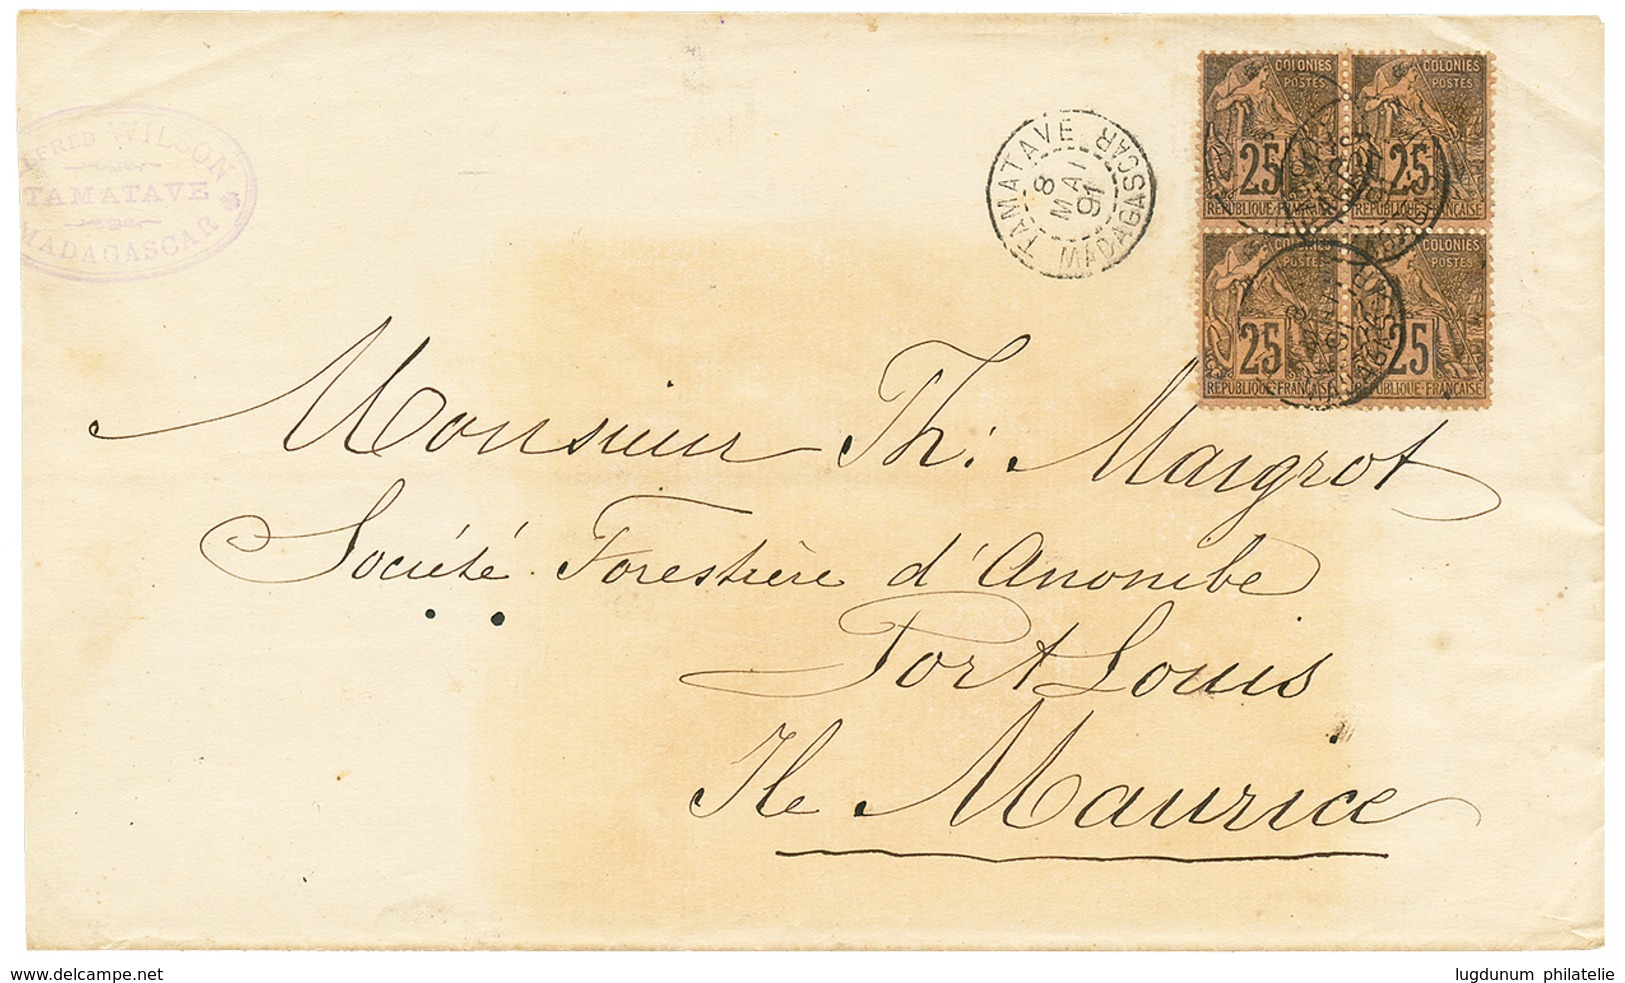 ALFRED WILSON
TAMATAVE
MADAGASCAR
TAMATAVE
8
MAI
91
MADAGASCAR
COLONIES
POSTES
25
RÉPUBLIQUE-FRANÇAISE
COLONIES
POSTES
25
RÉPUBLIQUE FRANÇAISE
COLONIES
POSTES
25
RÉPUBLIQUE-FRANÇAISE
COLONIES
POSTES
25
RÉPUBLIQUE-FRANÇAISE
Monsieur Th: Maigrot
Société Forestière d'Anonibe
Port Louis
Ile Maurice
www.delcampe.net
lugdunum philatelie